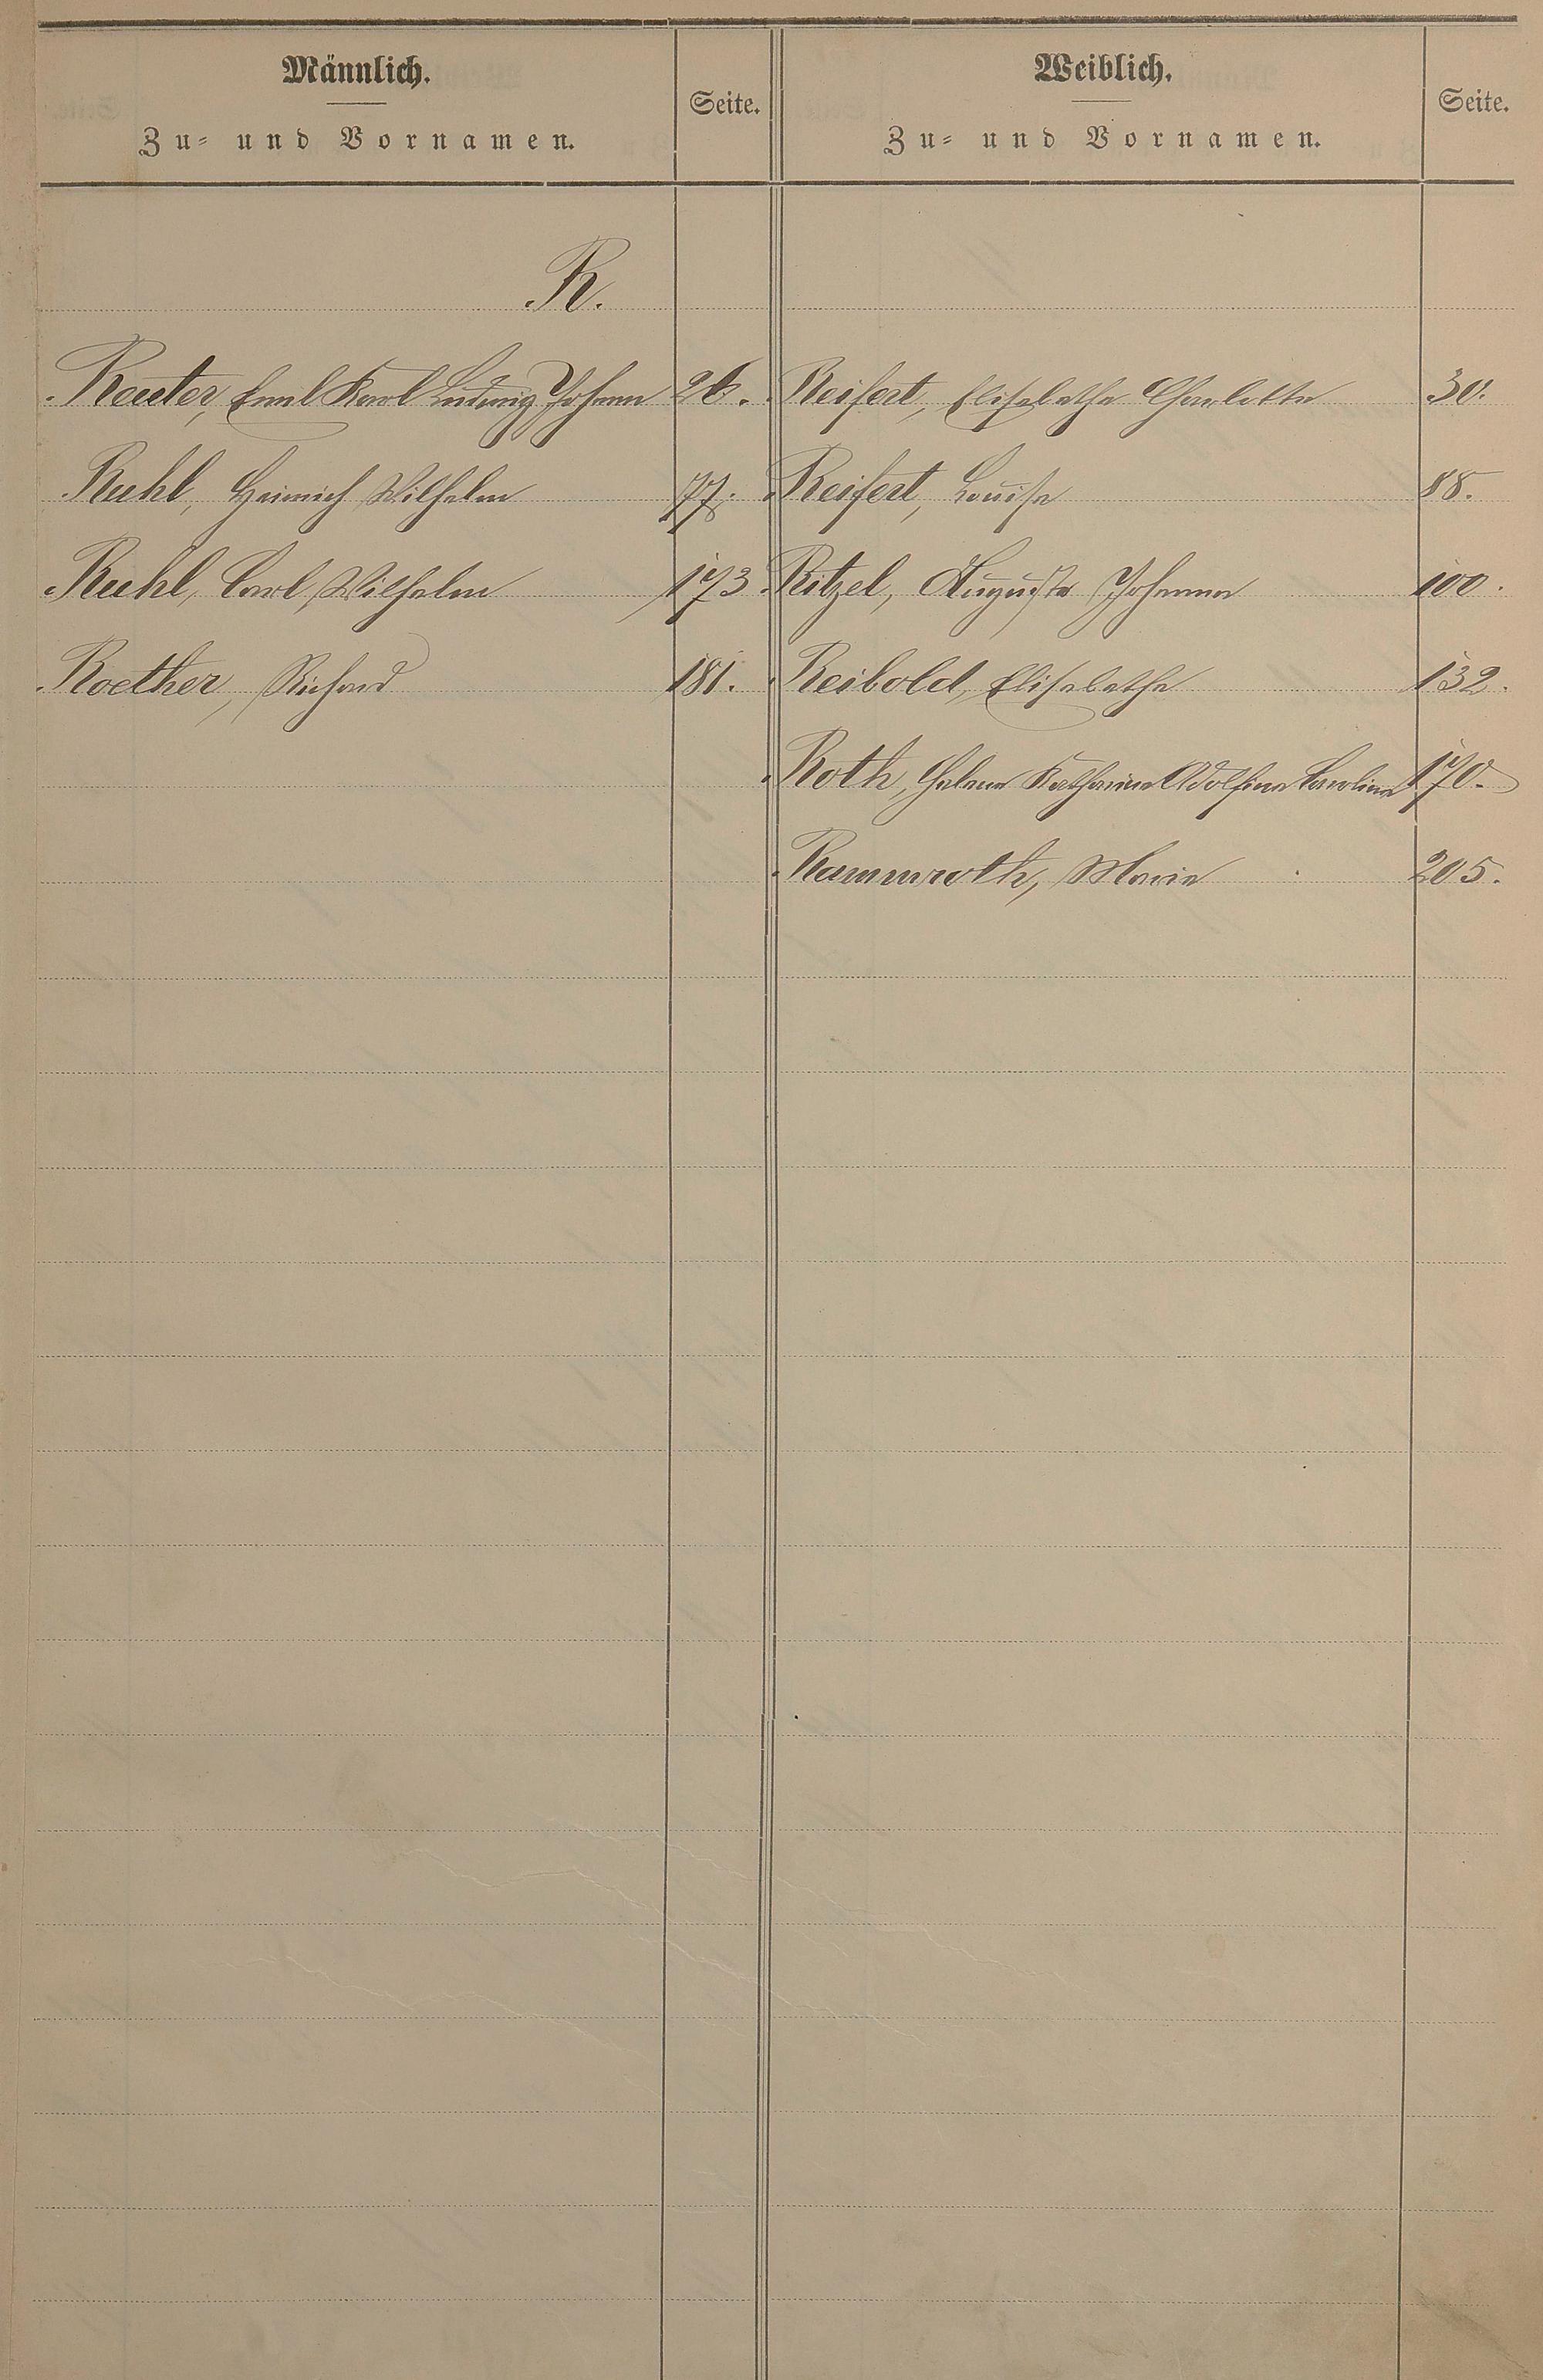 Männlich.
Zu- und Vornamen.
Seite.
Weiblich.
Zu- und Vornamen.
Seite.
R.
Reuter, Emil Karl Ludwig Johann 26.
Ruhl, Heinrich Wilhelm 77.
Ruhl, Carl Wilhelm 173
Roether, Richard 181.
Reifert, Elisabethe Charlotte 30.
Reifert, Louise 88.
Ritzel, Auguste Johanna 100.
Reibold, Elisabethe 132.
Roth, Helene Katharine Adolfine Caroline 170.
Rammroth, Marie 205.